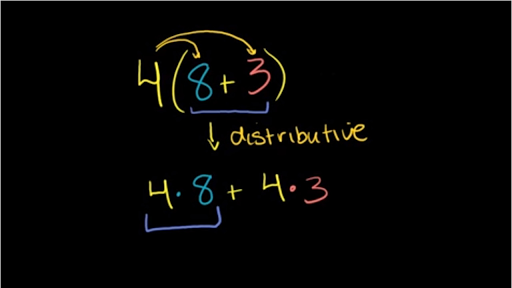 4(8+3)
↓ distributive
4·8 + 4·3